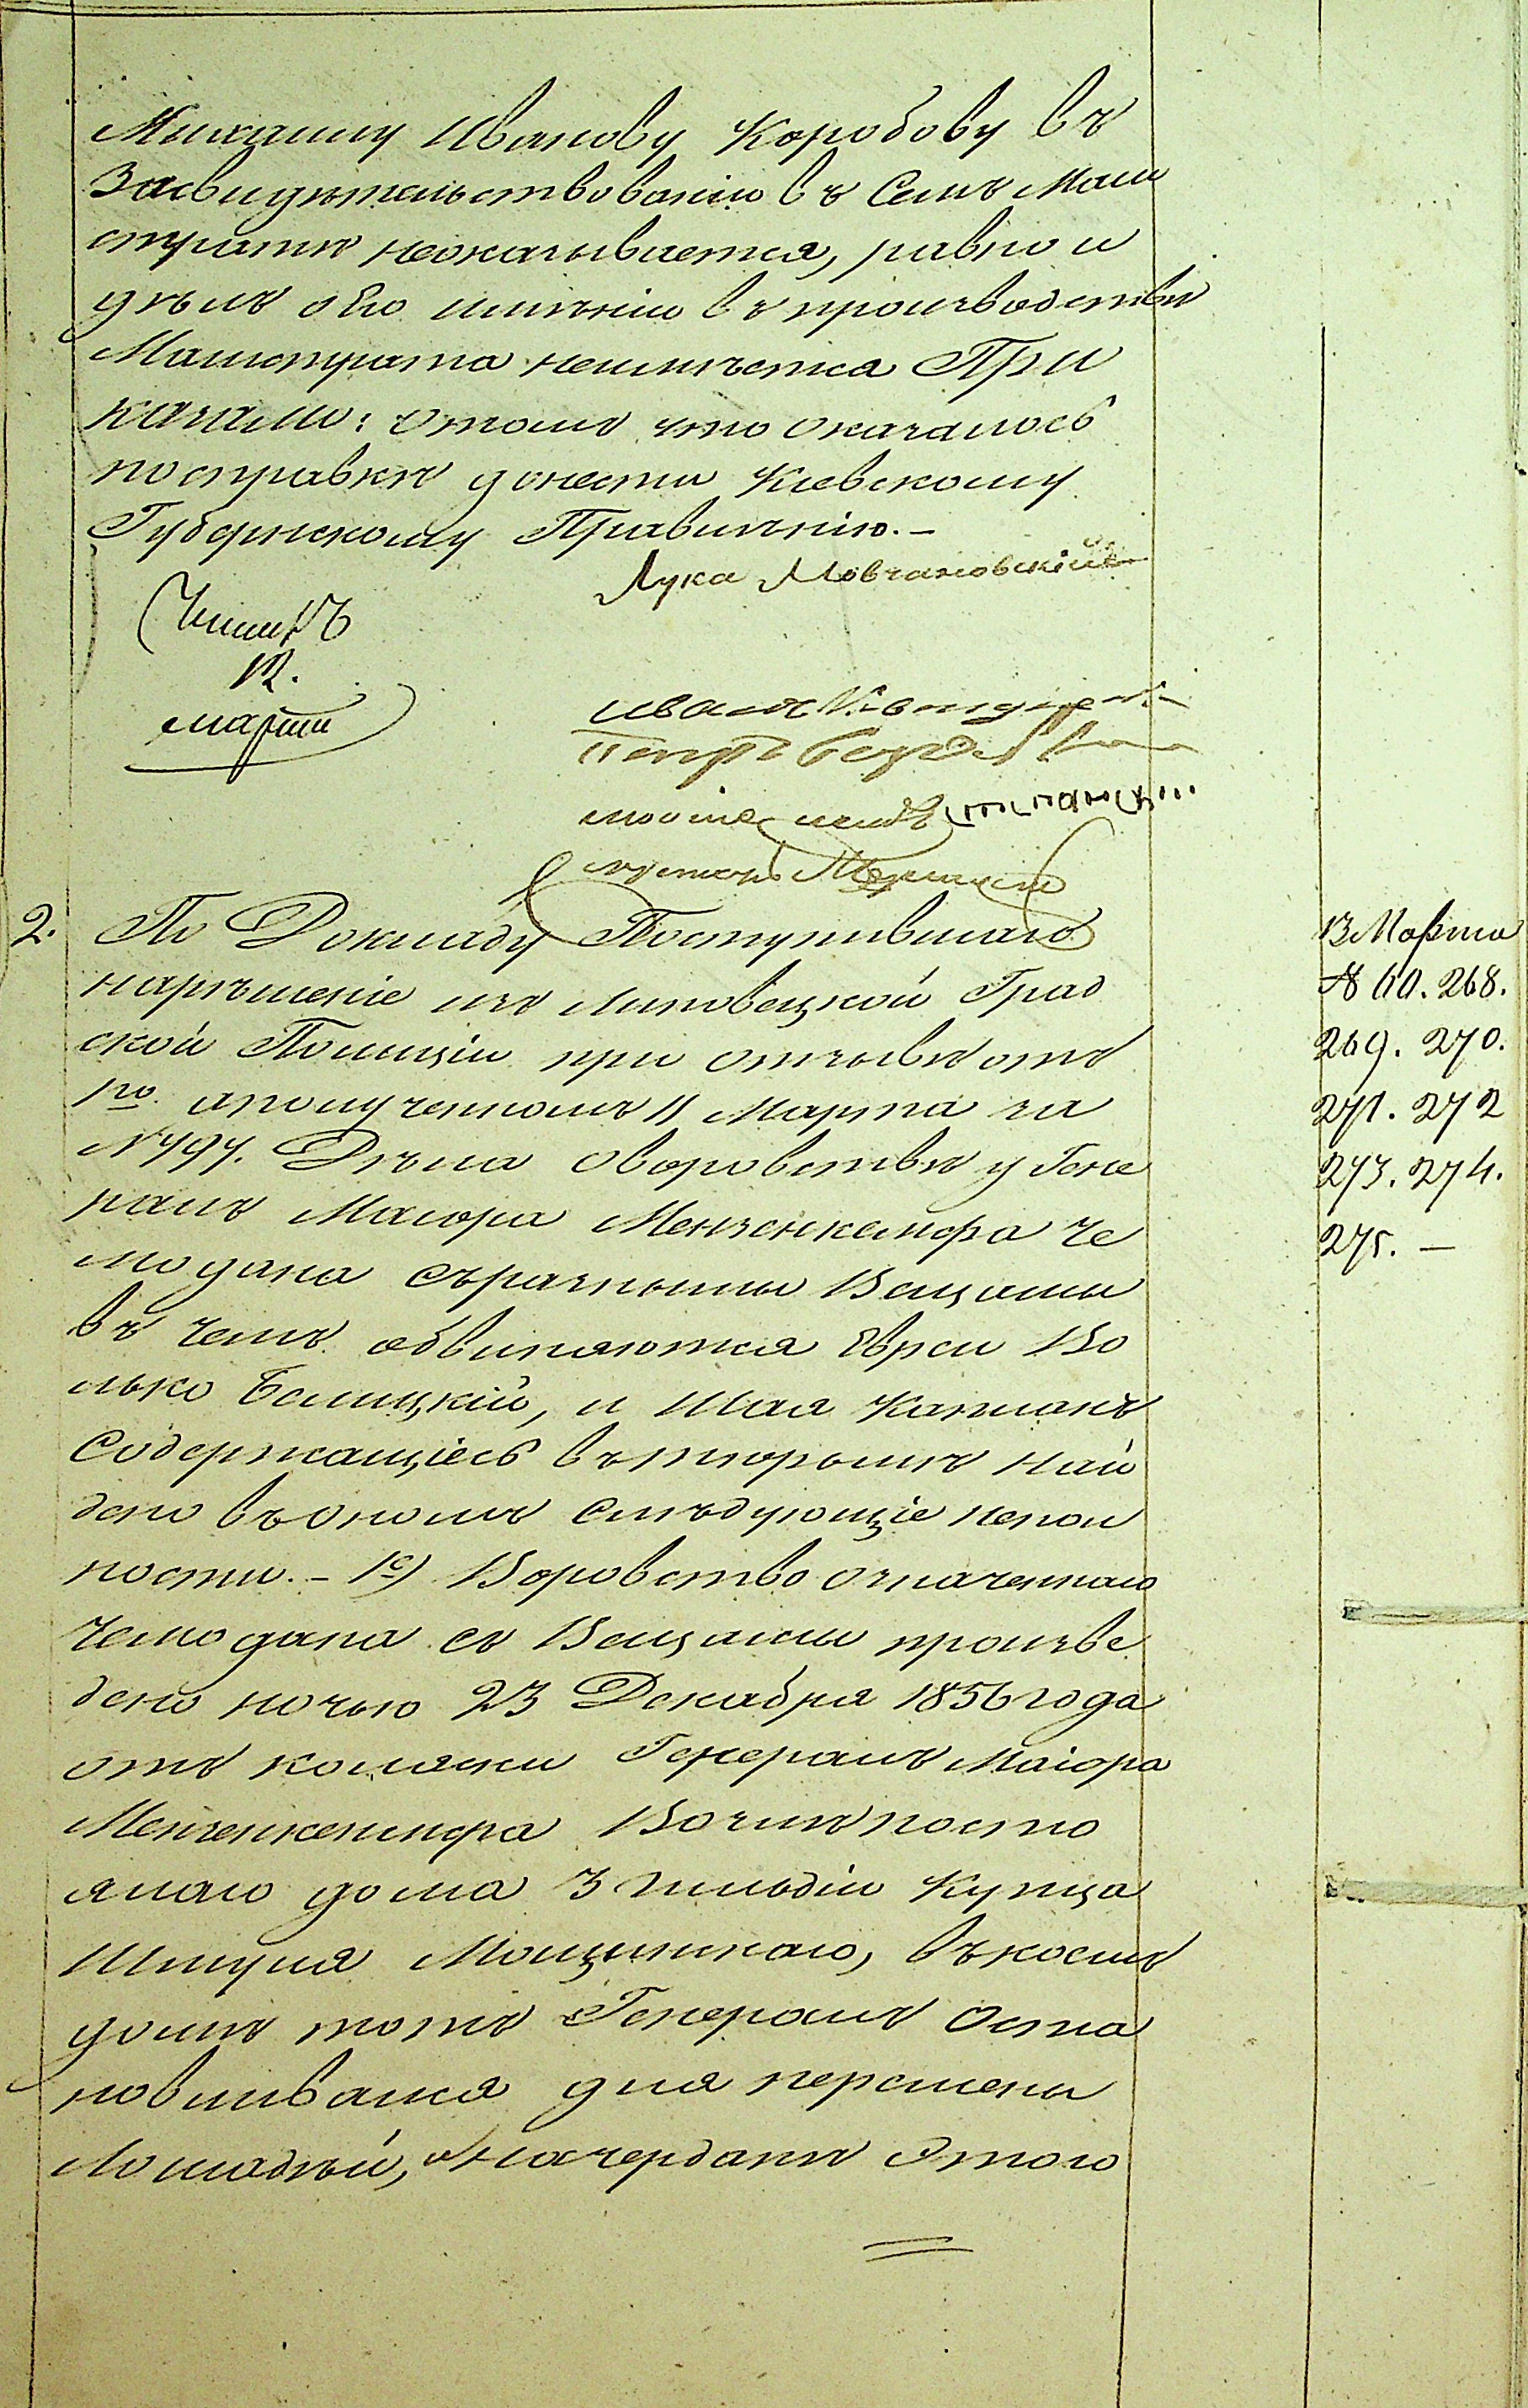 Михаилу Иванову Коробову въ
Засвидѣтельствованіи въ Семъ Маги
стратѣ неоказывается, равно и
дѣлъ обю имѣніи въ производствѣ
Магистрата неимѣется При
казали: отомъ что оказалось
посправкѣ донести Киевскому
Губернскому Правленію. —
Лука Мовчановскій
Читалъ
12.
марта
иванъ
петръ
2. По Докладу Поступившаго
наръшеніе изъ Липовецкой Град
ской Полиціи при отзывѣ отъ
1го. аполученномъ 11 Марта за
№ 797. Дѣла оворовствѣ у Гене
ралъ Маіора Мензенкемпфа че
модана съразными Вещами
въ чемъ обвиняются Евреи Во
лько Белицкій, и Шая Капланъ
Содержащіесь втюрьмѣ най
дено въономъ слѣдующіе непол
ности. — 1е) Воровство означеннаго
чемодана съ Вещами произве
дено ночью 23 Декабря 1856 года
отъ коляски Генералъ Маіора
Мензенкемпфа Возлѣ посто
ялаго дома 3 гильдіи Купца
Шмуля Мощинскаго, въкоемъ
домѣ тотъ Генералъ Оста
новливался для перемены
Лошадѣй, начердакѣ этого
13 Марта
№ 60. 268.
269. 270.
271. 272
273. 274.
275. —